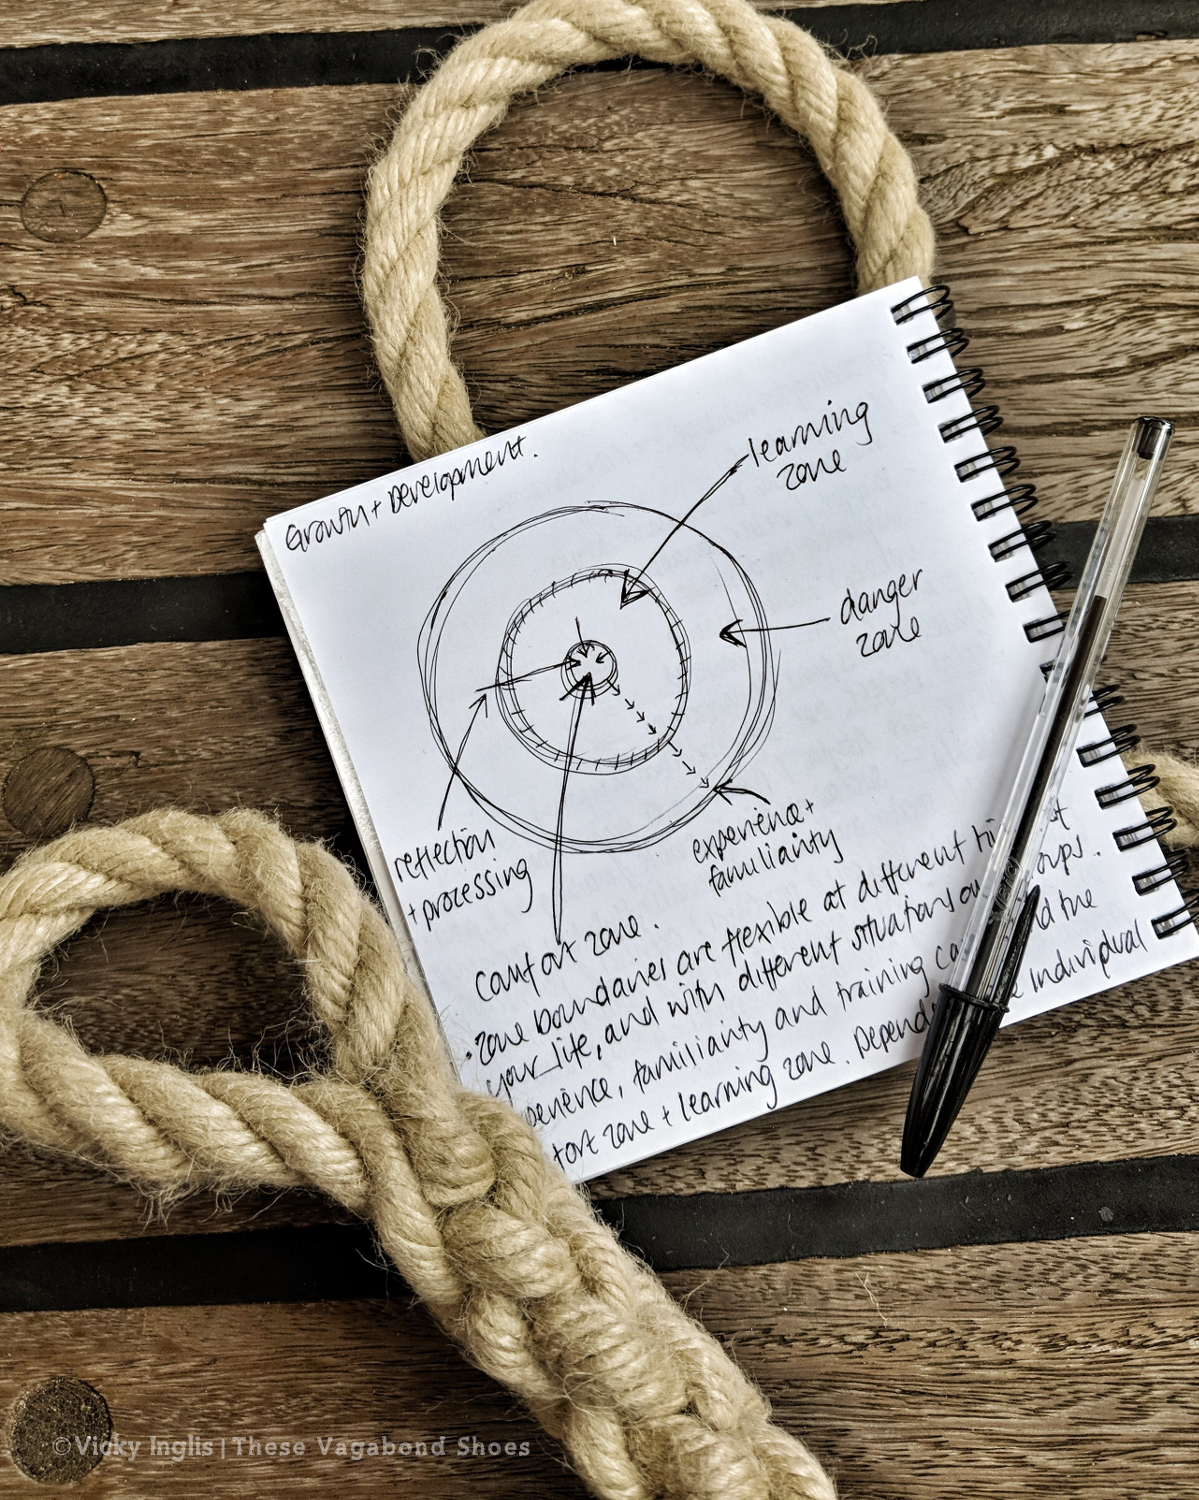 Growth + Development.
learning
zone
danger
zone
reflection
+ processing
experience +
familiarity
comfort zone.
• zone boundaries are flexible at different
your life, and with different situations
familiarity and training
zone + learning zone. Individual
and the
©Vicky Inglis | These Vagabond Shoes